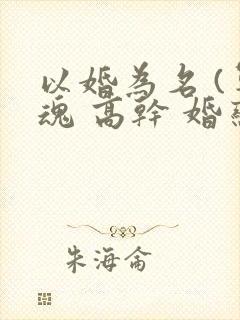 以婚為名(
魂 高幹 婚
朱海侖